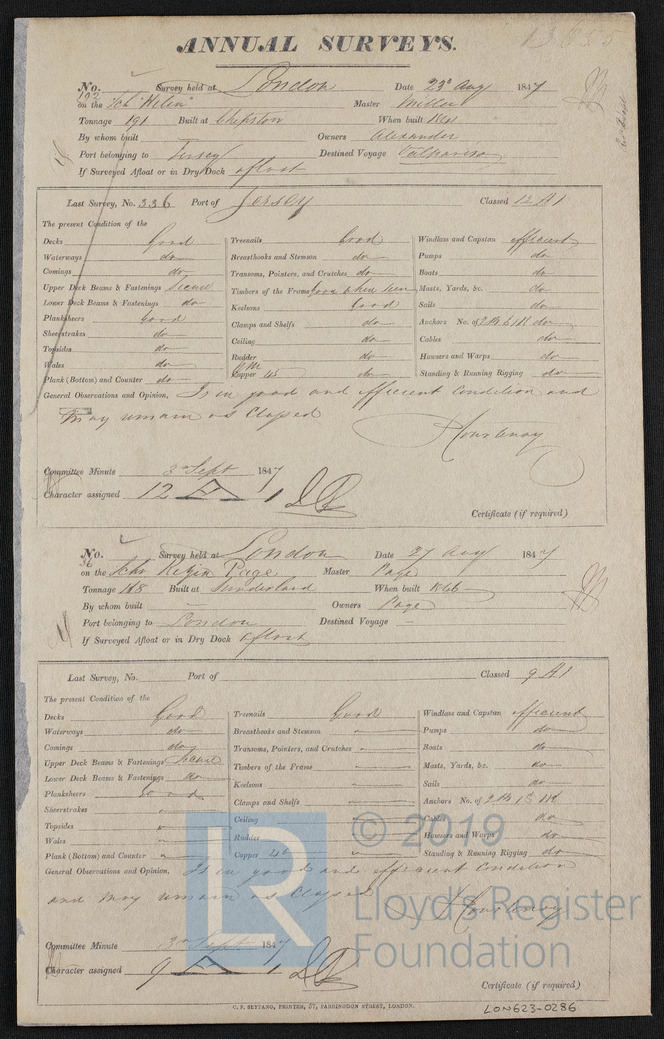 13855
ANNUAL SURVEYS.
No. 192 Survey held at London Date 23d Aug 1847
on the Sch "Helen" Master Miller
Tonnage 191 Built at Chepstow When built
By whom built Owners Alexander
Port belonging to Jersey Destined Voyage Valparaiso
If Surveyed Afloat or in Dry Dock afloat
Last Survey, No. 336 Port of Jersey Classed 12 A1
The present Condition of the
Decks Good Treenails Good Windlass and Capstan efficient
Waterways do Breasthooks and Stemson do Pumps do
Comings do Transoms, Pointers, and Crutches do Boats do
Upper Deck Beams & Fastenings Secure Timbers of the Frame Good where seen Masts, Yards, &c. do
Lower Deck Beams & Fastenings do Keelsons Good Sails do
Planksheers Good Clamps and Shelfs do Anchors No. of do
Sheerstrakes do Ceiling do Cables do
Topsides do Rudder do Hawsers and Warps do
Wales do Copper 45 do Standing & Running Rigging do
Plank (Bottom) and Counter do
General Observations and Opinion, Is in good and efficient Condition and
may remain as Classed
Courtenay
Committee Minute 3d Sept 1847
Character assigned 12 A 1
Certificate (if required)
No. 36 Survey held at London Date 27 Aug 1847
on the Schr Page Master Page
Tonnage 168 Built at Sunderland When built
By whom built Owners Page
Port belonging to London Destined Voyage
If Surveyed Afloat or in Dry Dock afloat
Last Survey, No. Port of Classed 9 A1
The present Condition of the
Decks Good Treenails Good Windlass and Capstan efficient
Waterways do Breasthooks and Stemson Pumps do
Comings do Transoms, Pointers, and Crutches Boats do
Upper Deck Beams & Fastenings Secure Timbers of the Frame Masts, Yards, &c. do
Lower Deck Beams & Fastenings do Keelsons Sails do
Planksheers Good Clamps and Shelfs Anchors No. of
Sheerstrakes Ceiling Cables do
Topsides Rudder Hawsers and Warps do
Wales Copper Standing & Running Rigging do
Plank (Bottom) and Counter
General Observations and Opinion, Is in good and efficient Condition
and may remain as Classed
Courtenay
Committee Minute 3d Sept 1847
Character assigned 9 A 1
Certificate (if required)
C. F. SEYFANG, PRINTER, 57, FARRINGDON STREET, LONDON.
LON623-0286
LR
© 2019
Lloyd's Register
Foundation